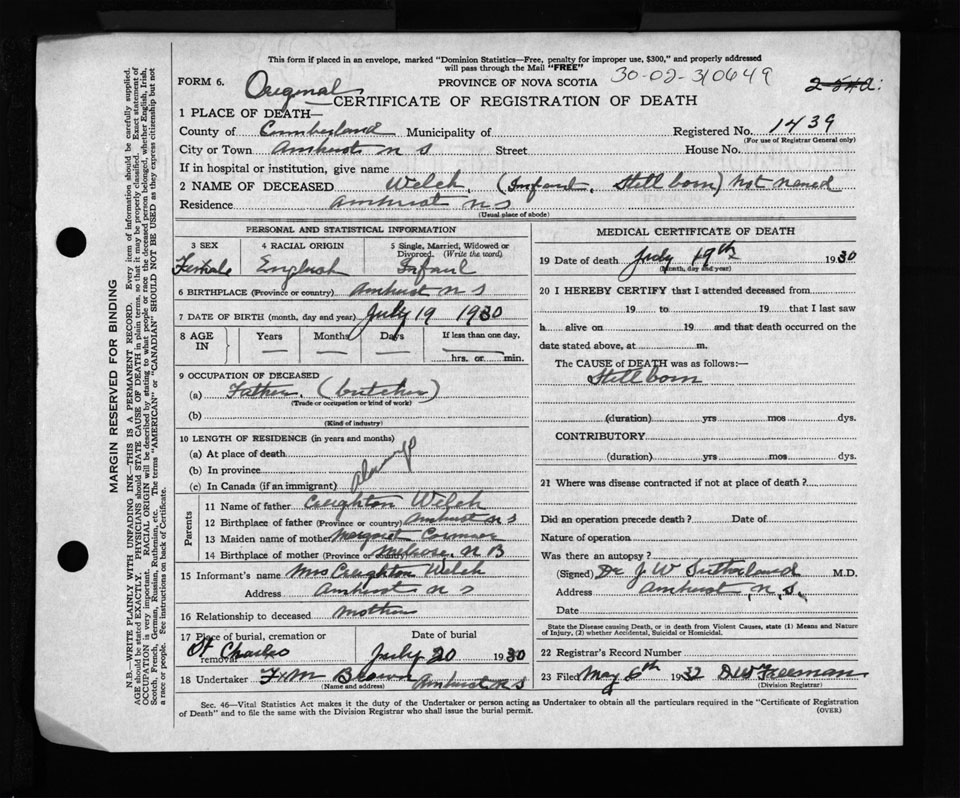 This form if placed in an envelope, marked "Dominion Statistics—Free, penalty for improper use, $300," and properly addressed
will pass through the Mail "FREE"
30-02-310649
FORM 6.
Original
PROVINCE OF NOVA SCOTIA
CERTIFICATE OF REGISTRATION OF DEATH
1 PLACE OF DEATH—
County of Cumberland Municipality of Registered No. 1439
(For use of Registrar General only)
City or Town Amherst N S Street House No.
If in hospital or institution, give name
2 NAME OF DECEASED Welch, (Infant, Still born) not named
Residence Amherst N S
(Usual place of abode)
PERSONAL AND STATISTICAL INFORMATION
3 SEX 4 RACIAL ORIGIN 5 Single, Married, Widowed or
Divorced. (Write the word)
Female English Infant
6 BIRTHPLACE (Province or country) Amherst N S
7 DATE OF BIRTH (month, day and year) July 19 1930
8 AGE IN Years Months Days If less than one day,
hrs. or min.
9 OCCUPATION OF DECEASED
(a) Father (butcher)
(Trade or occupation or kind of work)
(b)
(Kind of industry)
10 LENGTH OF RESIDENCE (in years and months)
(a) At place of death
(b) In province
(c) In Canada (if an immigrant)
Parents
11 Name of father Creighton Welch
12 Birthplace of father (Province or country) Amherst N S
13 Maiden name of mother Margaret Cormier
14 Birthplace of mother (Province or country) Melrose, N B
15 Informant's name Mrs Creighton Welch
Address Amherst N S
16 Relationship to deceased mother
17 Place of burial, cremation or removal Date of burial
St Charles July 20 1930
18 Undertaker F & M Brown Amherst N S
(Name and address)
MEDICAL CERTIFICATE OF DEATH
19 Date of death July 19th 1930
(Month, day and year)
20 I HEREBY CERTIFY that I attended deceased from
19 to 19 that I last saw
h alive on 19 and that death occurred on the
date stated above, at m.
The CAUSE of DEATH was as follows:—
Still born
(duration) yrs mos dys.
CONTRIBUTORY
(duration) yrs mos dys.
21 Where was disease contracted if not at place of death?
Did an operation precede death? Date of
Nature of operation
Was there an autopsy?
(Signed) Dr J W Sutherland M.D.
Address Amherst, N. S.
Date
State the Disease causing Death, or in death from Violent Causes, state (1) Means and Nature
of Injury, (2) whether Accidental, Suicidal or Homicidal.
22 Registrar's Record Number
23 Filed May 6th 1932 D W Freeman
(Division Registrar)
Sec. 46—Vital Statistics Act makes it the duty of the Undertaker or person acting as Undertaker to obtain all the particulars required in the "Certificate of Registration
of Death" and to file the same with the Division Registrar who shall issue the burial permit.
(OVER)
MARGIN RESERVED FOR BINDING
N.B.—WRITE PLAINLY WITH UNFADING INK—THIS IS A PERMANENT RECORD. Every item of information should be carefully supplied.
AGE should be stated EXACTLY. PHYSICIANS should STATE CAUSE OF DEATH in plain terms, so that it may be properly classified. Exact statement of
OCCUPATION is very important. RACIAL ORIGIN will be described by stating to what people or race the deceased person belonged, whether English, Irish,
Scotch, French, German, Russian, Ruthenian, etc. The terms "AMERICAN" or "CANADIAN" SHOULD NOT BE USED as they express citizenship but not
a race or people. See instructions on back of Certificate.